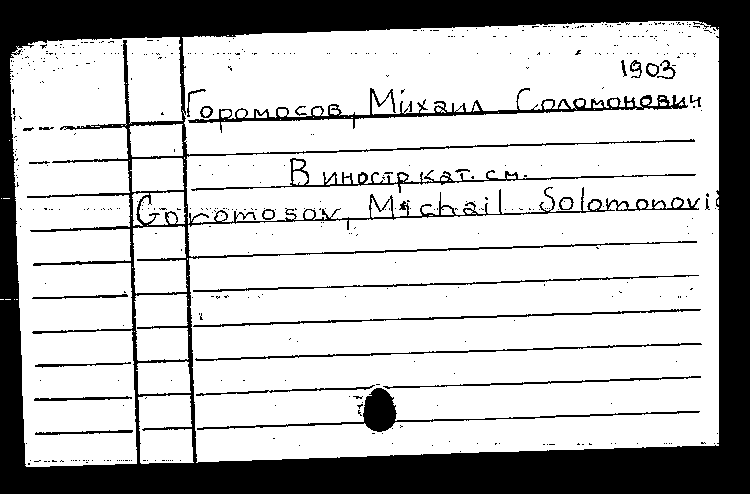 1903
Горомосов, Михаил Соломонович
В иностр кат. см.
Goromosov, Michail Solomonovič